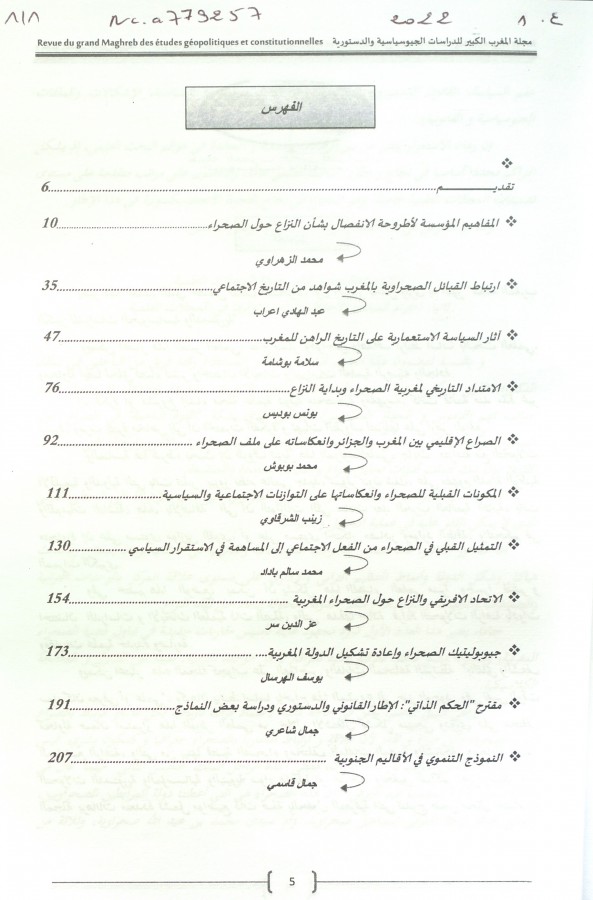 ١/١ Nc.a779257 2022 ع. ١
Revue du grand Maghreb des études géopolitiques et constitutionnelles مجلة المغرب الكبير للدراسات الجيوسياسية والدستورية
الفهرس
❖
تقديـــــــــــــم...............................................................................6
❖ المفاهيم المؤسسة لأطروحة الانفصال بشأن النزاع حول الصحراء................................10
محمد الزهراوي
❖ ارتباط القبائل الصحراوية بالمغرب شواهد من التاريخ الاجتماعي................................35
عبد الهادي اعراب
❖ أثار السياسة الاستعمارية على التاريخ الراهن للمغرب...........................................47
سلامة بوشامة
❖ الامتداد التاريخي لمغربية الصحراء وبداية النزاع................................................76
يونس بوديس
❖ الصراع الإقليمي بين المغرب والجزائر وانعكاساته على ملف الصحراء ...........................92
محمد بوبوش
❖ المكونات القبلية للصحراء وانعكاساتها على التوازنات الاجتماعية والسياسية.....................111
زينب الشرقاوي
❖ التمثيل القبلي في الصحراء من الفعل الاجتماعي إلى المساهمة في الاستقرار السياسي ............130
محمد سالم باداد
❖ الاتحاد الافريقي والنزاع حول الصحراء المغربية ................................................154
عز الدين سر
❖ جيوبوليتيك الصحراء وإعادة تشكيل الدولة المغربية.... ........................................173
يوسف الهرسال
❖ مقترح "الحكم الذاتي": الإطار القانوني والدستوري ودراسة بعض النماذج........................191
جمال شاعري
❖ النموذج التنموي في الأقاليم الجنوبية ..........................................................207
جمال قاسمي
5